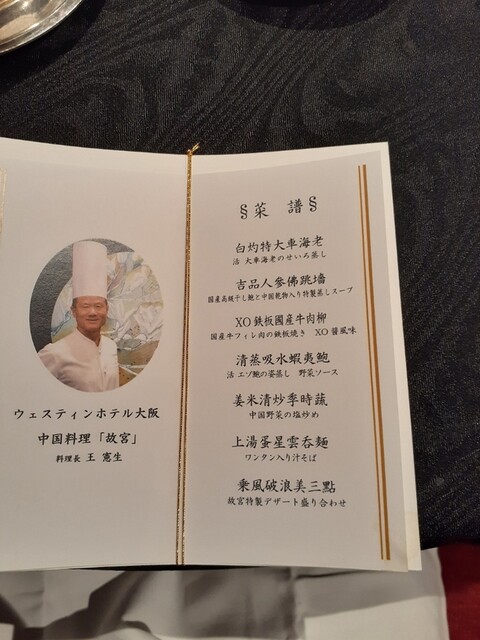 ウェスティンホテル大阪
中国料理「故宮」
料理長 王 憲生
§ 菜 譜 §
白灼特大車海老
活 大車海老のせいろ蒸し
吉品人参佛跳墻
国産高級干し鮑と中国乾物入り特製蒸しスープ
XO鉄板國産牛肉柳
国産牛フィレ肉の鉄板焼き XO醤風味
清蒸吸水蝦夷鮑
活 エゾ鮑の姿蒸し 野菜ソース
姜米清炒季時蔬
中国野菜の塩炒め
上湯蛋星雲呑麵
ワンタン入り汁そば
乘風破浪美三點
故宮特製デザート盛り合わせ